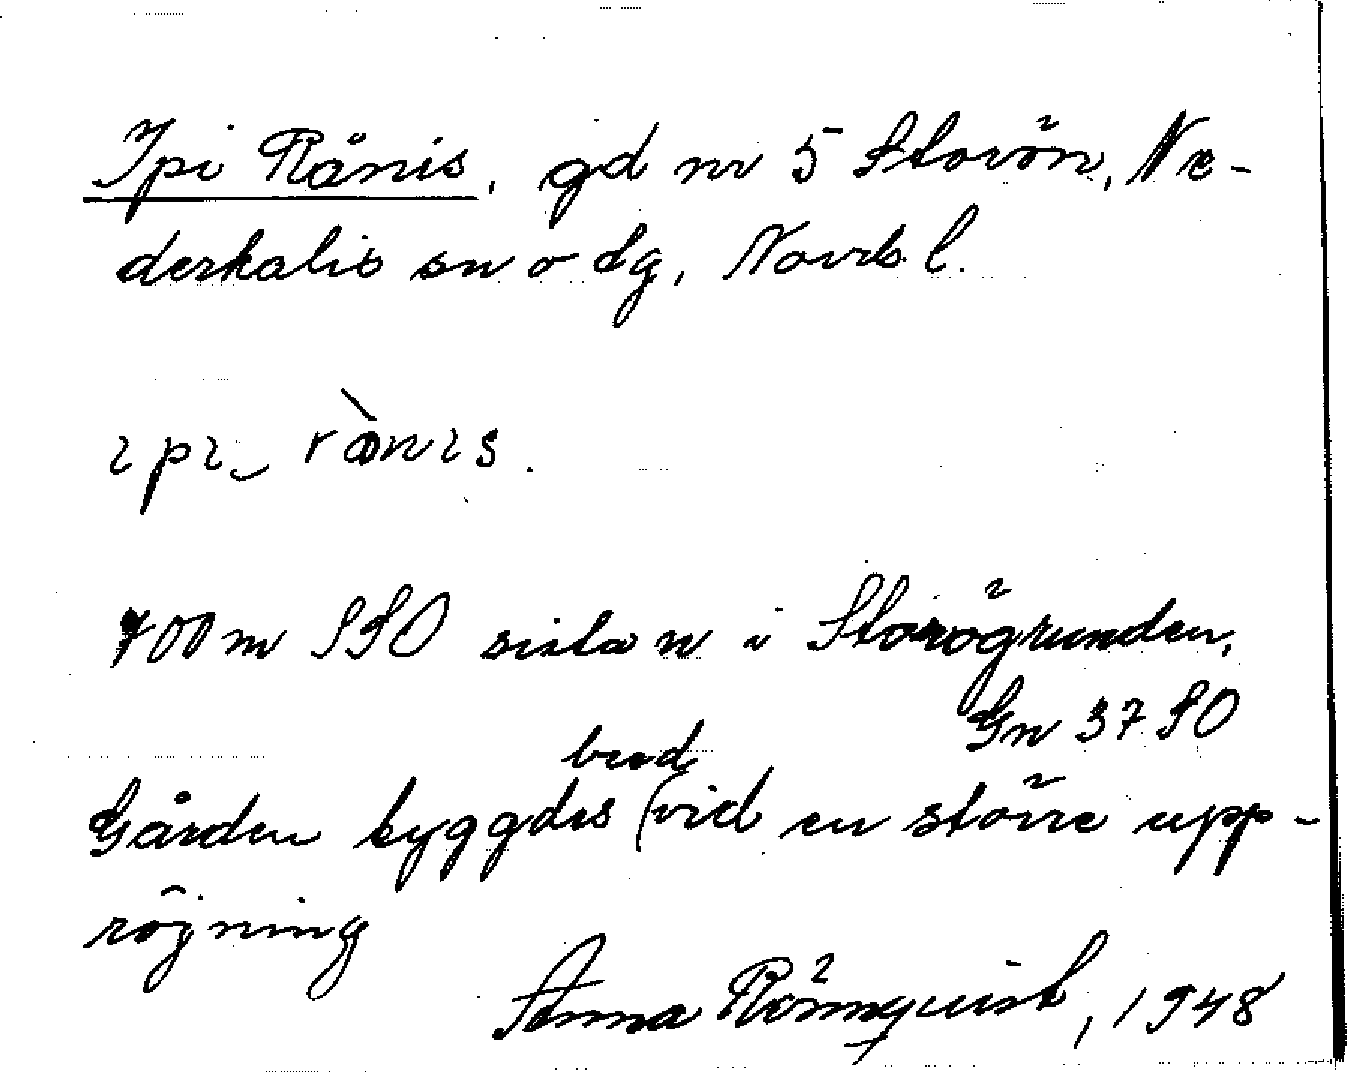 Ipi Rånis, gd nr 5 Storön, Ne-
derkalix sn o dg, Norrb. l.
ipi‿ rå̀nis.
700 m SSO sista n i Storögrunden,
Gn 37 SO
bred
Gården byggdes (vid en större upp-
röjning
Anna Rönnquist, 1948